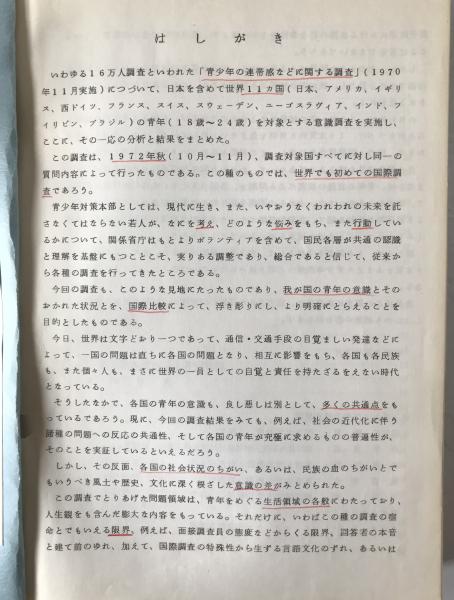 はしがき
いわゆる16万人調査といわれた「青少年の連帯感などに関する調査」(1970
年11月実施)につづいて、日本を含めて世界11カ国(日本、アメリカ、イギリ
ス、西ドイツ、フランス、スイス、スウェーデン、ユーゴスラヴィア、インド、フ
ィリピン、ブラジル)の青年(18歳〜24歳)を対象とする意識調査を実施し、
ここに、その一応の分析と結果をまとめた。
この調査は、1972年秋(10月〜11月)、調査対象国すべてに対し同一の
質問内容によって行ったものである。この種のものでは、世界でも初めての国際調
査であろう。
青少年対策本部としては、現代に生き、また、いやおうなくわれわれの未来を託
さなくてはならない若人が、なにを考え、どのような悩みをもち、また行動してい
るかについて、関係省庁はもとよりボランティアを含めて、国民各層が共通の認識
と理解を基盤にもつことこそ、実りある調整であり、総合であると信じて、従来か
ら各種の調査を行ってきたところである。
今回の調査も、このような見地にたったものであり、我が国の青年の意識とその
おかれた状況とを、国際比較によって、浮き彫りにし、より明確にとらえることを
目的としたものである。
今日、世界は文字どおり一つであって、通信・交通手段の目覚ましい発達などに
よって、一国の問題は直ちに各国の問題となり、相互に影響をもち、各国も各民族
も、また個々人も、まさに世界の一員としての自覚と責任を持たざるをえない時代
となっている。
そうしたなかで、各国の青年の意識も、良し悪しは別として、多くの共通点をも
っているであろう。現に、今回の調査結果をみても、例えば、社会の近代化に伴う
諸種の問題への反応の共通性、そして各国の青年が究極に求めるものの普遍性が、
そのことを実証しているといえるだろう。
しかし、その反面、各国の社会状況のちがい、あるいは、民族の血のちがいとで
もいうべき風土や歴史、文化に深く根ざした意識の差がみとめられた。
この調査でとりあげた問題領域は、青年をめぐる生活領域の各般にわたっており、
人生観をも含んだ膨大な内容をもっている。それだけに、いわばこの種の調査の宿
命とでもいえる限界、例えば、面接調査員の態度などからくる限界、回答者の本音
と建て前のゆれ、加えて、国際調査の特殊性から生ずる言語文化のずれ、あるいは